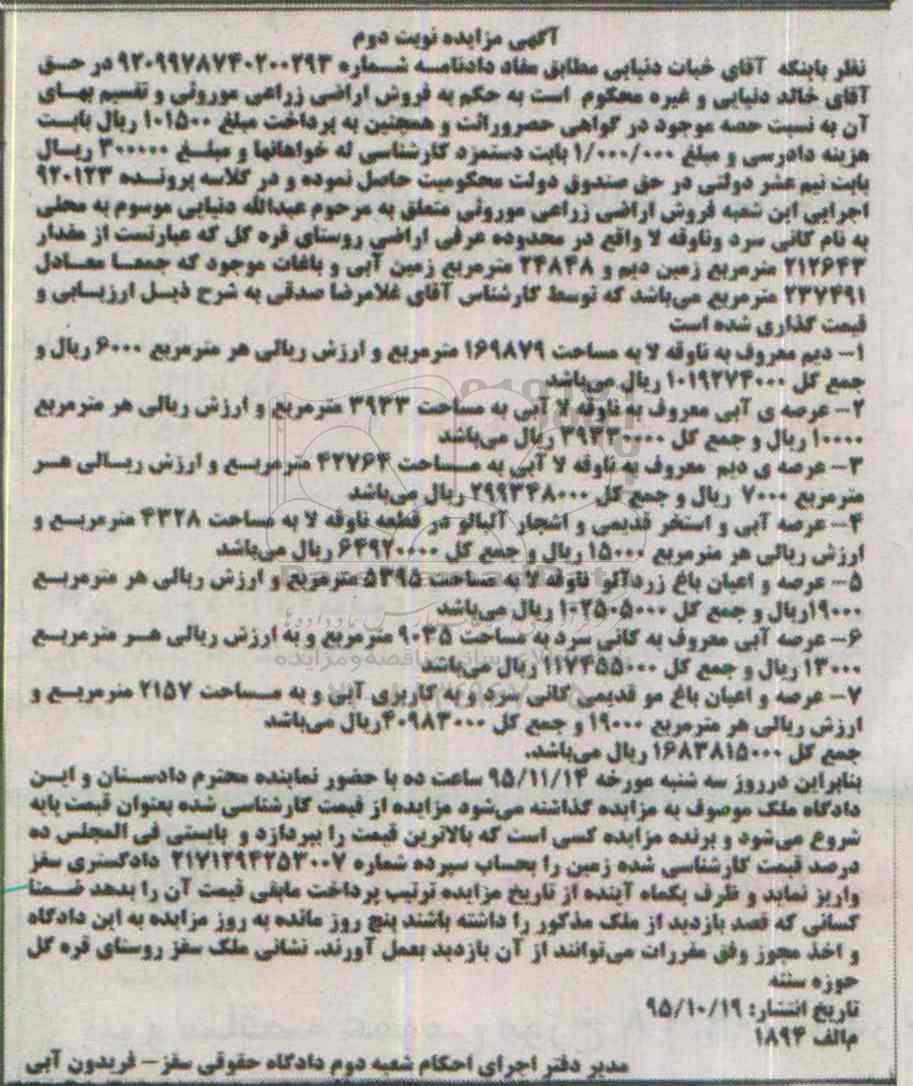 آگهی مزایده نوبت دوم
نظر باینکه آقای خبات دنیایی مطابق مفاد دادنامه شماره ۹۲۰۹۹۷۸۷۴۰۲۰۰۲۹۳ در حق
آقای خالد دنیایی و غیره محکوم است به حکم به فروش اراضی زراعی موروثی و تقسیم بهای
آن به نسبت حصه موجود در گواهی حصروراثت و همچنین به پرداخت مبلغ ۱۰۱۵۰۰ ریال بابت
هزینه دادرسی و مبلغ ۱/۰۰۰/۰۰۰ بابت دستمزد کارشناسی له خواهانها و مبلغ ۳۰۰۰۰۰ ریال
بابت نیم عشر دولتی در حق صندوق دولت محکومیت حاصل نموده و در کلاسه پرونده ۹۲۰۱۲۳
اجرایی این شعبه فروش اراضی زراعی موروثی متعلق به مرحوم عبدالله دنیایی موسوم به محلی
به نام کانی سرد وناوقه لا واقع در محدوده عرفی اراضی روستای قره گل که عبارتست از مقدار
۲۱۲۶۴۳ مترمربع زمین دیم و ۲۴۸۴۸ مترمربع زمین آبی و باغات موجود که جمعا معادل
۲۳۷۴۹۱ مترمربع می‌باشد که توسط کارشناس آقای غلامرضا صدقی به شرح ذیل ارزیابی و
قیمت گذاری شده است
۱- دیم معروف به ناوقه لا به مساحت ۱۶۹۸۷۹ مترمربع و ارزش ریالی هر مترمربع ۶۰۰۰ ریال و
جمع کل ۱۰۱۹۲۷۴۰۰۰ ریال می‌باشد
۲- عرصه ی آبی معروف به ناوقه لا آبی به مساحت ۳۹۳۳ مترمربع و ارزش ریالی هر مترمربع
۱۰۰۰۰ ریال و جمع کل ۳۹۳۳۰۰۰۰ ریال می‌باشد
۳- عرصه ی دیم معروف به ناوقه لا آبی به مساحت ۴۲۷۶۴ مترمربع و ارزش ریالی هر
مترمربع ۷۰۰۰ ریال و جمع کل ۲۹۹۳۴۸۰۰۰ ریال می‌باشد
۴- عرصه آبی و استخر قدیمی و اشجار آلبالو در قطعه ناوقه لا به مساحت ۴۳۲۸ مترمربع و
ارزش ریالی هر مترمربع ۱۵۰۰۰ ریال و جمع کل ۶۴۹۲۰۰۰۰ ریال می‌باشد
۵- عرصه و اعیان باغ زردآلو ناوقه لا به مساحت ۵۳۹۵ مترمربع و ارزش ریالی هر مترمربع
۱۹۰۰۰ریال و جمع کل ۱۰۲۵۰۵۰۰۰ ریال می‌باشد
۶- عرصه آبی معروف به کانی سرد به مساحت ۹۰۳۵ مترمربع و به ارزش ریالی هر مترمربع
۱۳۰۰۰ ریال و جمع کل ۱۱۷۴۵۵۰۰۰ ریال می‌باشد
۷- عرصه و اعیان باغ مو قدیمی کانی سرد و به کاربری آبی و به مساحت ۲۱۵۷ مترمربع و
ارزش ریالی هر مترمربع ۱۹۰۰۰ و جمع کل ۴۰۹۸۳۰۰۰ریال می‌باشد
جمع کل ۱۶۸۳۸۱۵۰۰۰ ریال می‌باشد.
بنابراین درروز سه شنبه مورخه ۹۵/۱۱/۱۴ ساعت ده با حضور نماینده محترم دادستان و این
دادگاه ملک موصوف به مزایده گذاشته می‌شود مزایده از قیمت کارشناسی شده بعنوان قیمت پایه
شروع می‌شود و برنده مزایده کسی است که بالاترین قیمت را بپردازد و بایستی فی المجلس ده
درصد قیمت کارشناسی شده زمین را بحساب سپرده شماره ۲۱۷۱۲۹۴۲۵۳۰۰۷ دادگستری سقز
واریز نماید و ظرف یکماه آینده از تاریخ مزایده ترتیب پرداخت مابقی قیمت آن را بدهد ضمنا
کسانی که قصد بازدید از ملک مذکور را داشته باشند پنج روز مانده به روز مزایده به این دادگاه
و اخذ مجوز وفق مقررات می‌توانند از آن بازدید بعمل آورند. نشانی ملک سقز روستای قره گل
حوزه سنته
تاریخ انتشار: ۹۵/۱۰/۱۹
م‌الف ۱۸۹۴
مدیر دفتر اجرای احکام شعبه دوم دادگاه حقوقی سقز- فریدون آبی